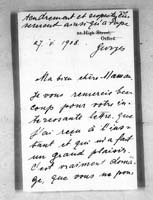 tendrement et
sement ainsi qu'à Papa
High Street
Oxford
27. V. 1918.
Georges
Ma bien chère Maman
Je vous remercie beau
coup pour votre in
téressante lettre, que
j'ai reçu à l'ins
tant et qui m'a fait
un grand plaisir.
C'est vraiment doma
ge, que vous ne pou